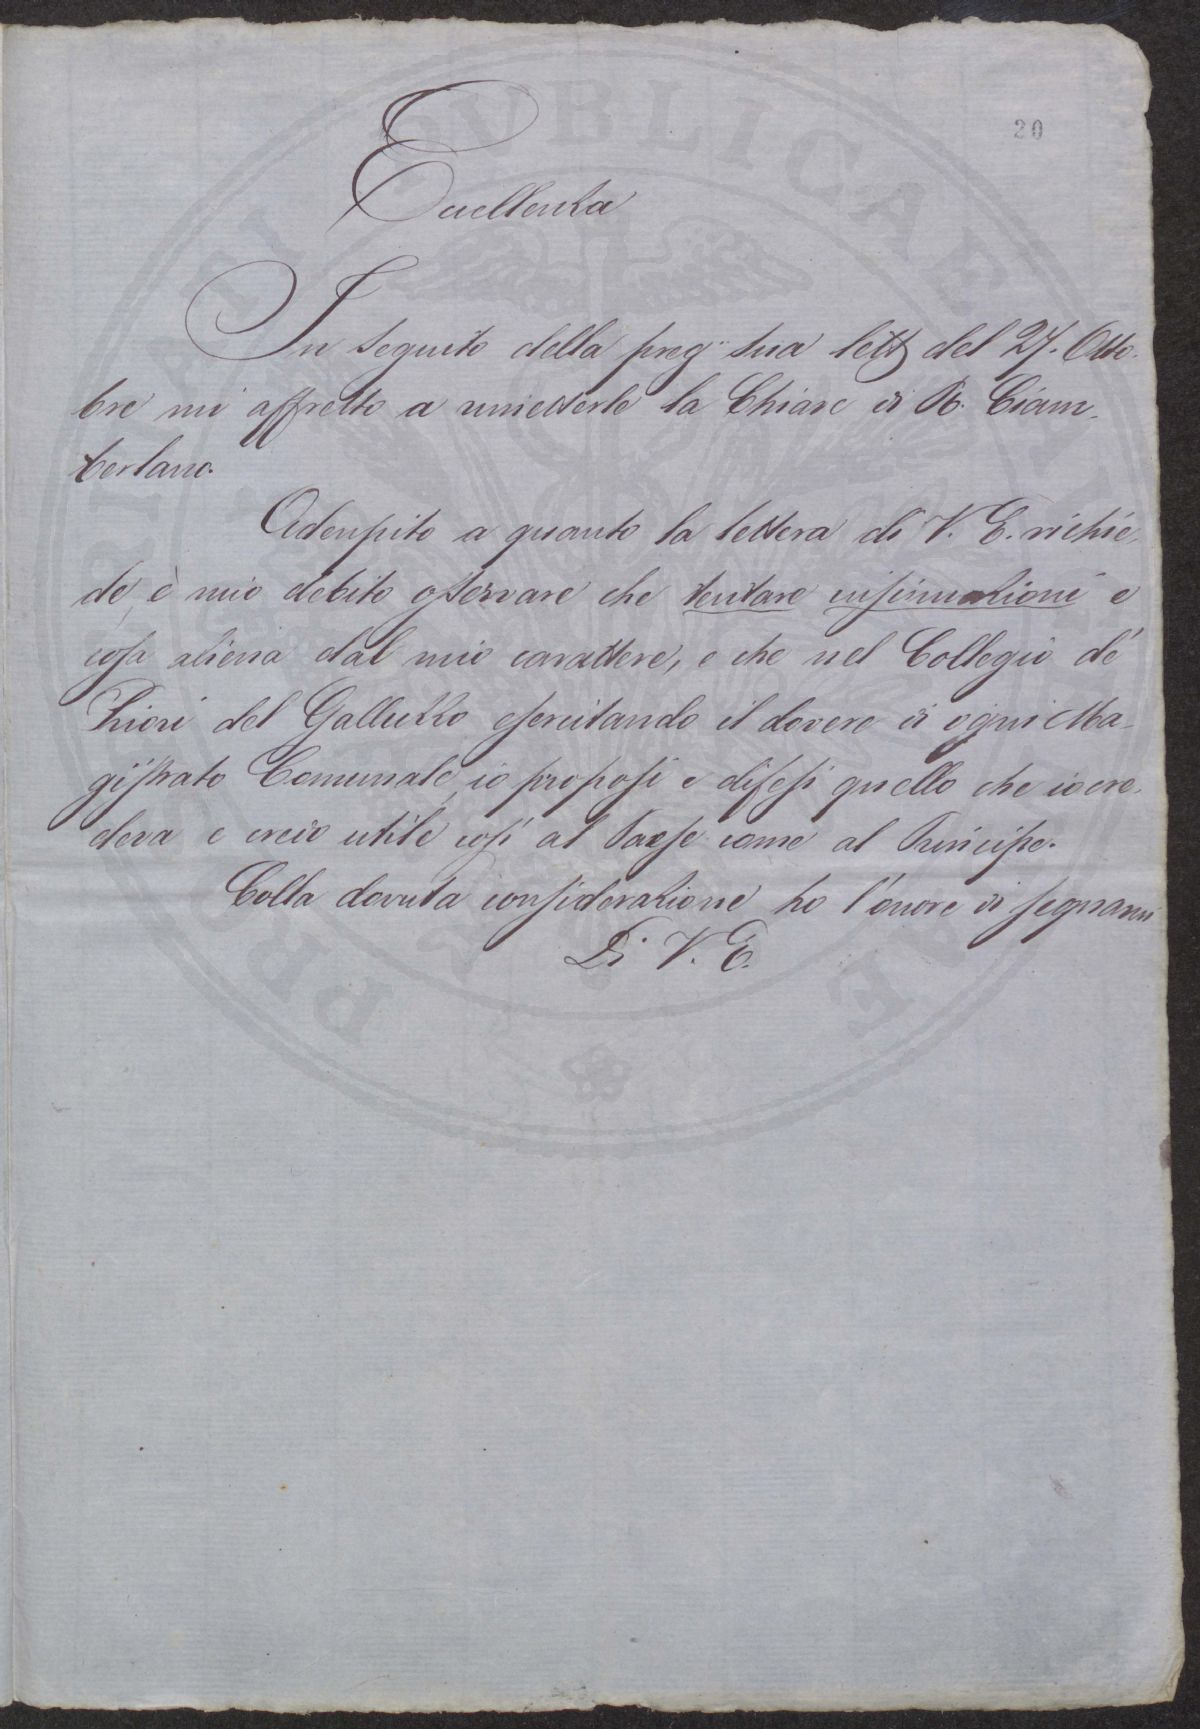 20
Eccellenza
In seguito della preg.ª sua lett del 27. Otto-
bre mi affretto a rimetterle la Chiave di R. Ciam-
berlano.
Adempito a quanto la lettera di V. E. richie-
de, è mio debito osservare che tentare insinuazioni e
cosa aliena dal mio carattere, e che nel Collegio de'
Priori del Galluzzo esercitando il dovere di ogni Ma-
gistrato Comunale, io proposi e difesi quello che io cre-
deva e credo utile così al Paese come al Principe.
Colla dovuta considerazione ho l'onore di segnarmi
Di V. E.
PUBLICAE